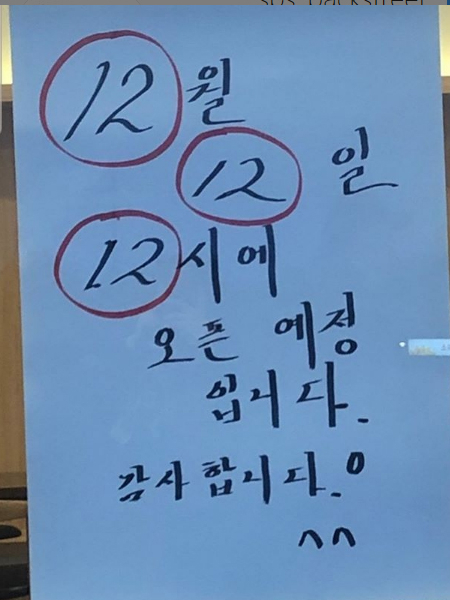 12월
12 일
12시에
오픈 예정
입니다.
감사합니다.
^^